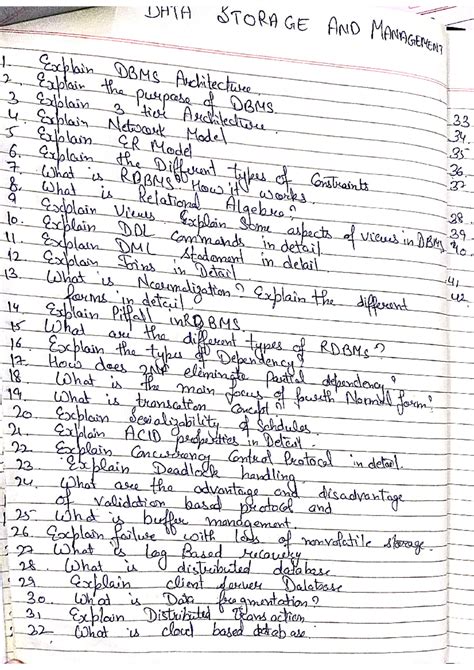 DATA STORAGE AND MANAGEMENT
1. Explain DBMS Architecture.
2. Explain the purpose of DBMS.
3 Explain 3 tier Architecture.
4. Explain Network Model
5 Explain ER Model
6. Explain the Different types of Constraints
7. What is RDBMS How it works.
8. What is Relational Algebra?
9 Explain Views. Explain some aspects of views in DBMS
10. Explain DDL Commands in detail
11. Explain DML Statement in detail
12 Explain Joins in Detail
13. What is Normalization? Explain the different
forms in detail
14. Explain Pitfall in RDBMS.
15 What are the different types of RDBMS?
16. Explain the types of Dependency
17. How does 2NF eliminate partial dependency?
18. What is the main focus of fourth Normal form?
19. What is transcation Concept
20 Explain Serializability of Schdules
21. Explain ACID properties in Detail.
22. Explain Concurrency Control Protocol in detail.
23 Explain Deadlock handling
24. What are the advantage and disadvantage
of validation based protocol and
25 What is buffer management.
26 Explain failure with loss of nonvolatile storage.
27 What is Log Based recovery
28. What is distributed database
29 Explain client server Database
30. What is Data fragmentation?
31 Explain Distributed Transaction
32 What is cloud based database
33
34.
35
36.
37
38
39.
40.
41
42